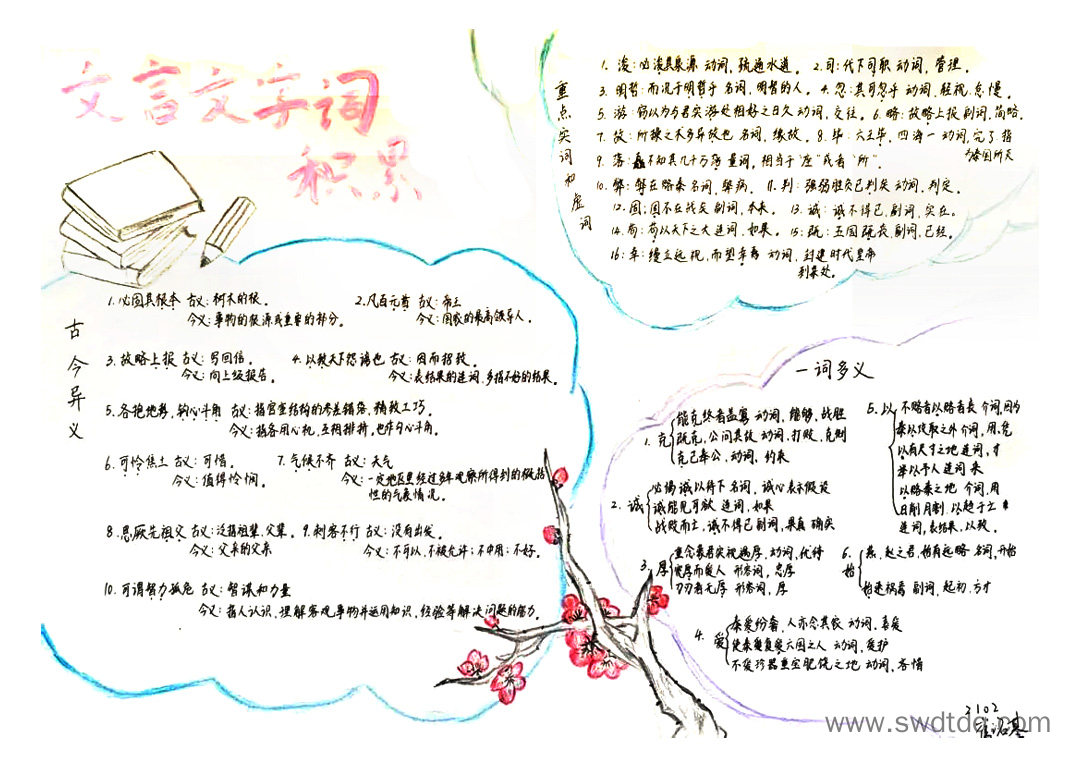 文言文字词
积累
重点实词和虚词
1. 浚：必浚其泉源 动词，疏通水道。 2. 司：代下司职 动词，管理。
3. 明哲：而况于明哲乎 名词，明智的人。 4. 忽：其可忽乎 动词，轻视，怠慢。
5. 游：窃以为与君实游处相好之日久 动词，交往。 6. 略：故略上报 副词，简略。
7. 故：所操之术多异故也 名词，缘故。 8. 毕：六王毕，四海一 动词，完了 指
为秦国所灭
9. 落：矗不知其几千万落 量词，相当于“座”或者“所”。
10. 弊：弊在赂秦 名词，弊病。 11. 判：强弱胜负已判矣 动词，判定。
12. 固：固不在战矣 副词，本来。 13. 诚：诚不得已，副词，实在。
14. 苟：苟以天下之大 连词，如果。 15. 既：五国既丧，副词，已经。
16. 幸：缦立远视，而望幸焉 动词，封建时代皇帝
到某处。
古今异义
1. 必固其根本 古义：树木的根。 2. 凡百元首 古义：帝王
今义：事物的根源或重要的部分。 今义：国家的最高领导人。
3. 故略上报 古义：写回信。 4. 以致天下怨谤也 古义：因而招致。
今义：向上级报告。 今义：表结果的连词，多指不好的结果。
5. 各抱地势，钩心斗角 古义：指宫室结构的参差错落，精致工巧。
今义：指各用心机，互相排挤，也作勾心斗角。
6. 可怜焦土 古义：可惜。 7. 气候不齐 古义：天气
今义：值得怜悯。 今义：一定地区里经过多年观察所得到的概括
性的气象情况。
8. 思厥先祖父 古义：泛指祖辈，父辈。 9. 刺客不行 古义：没有出发。
今义：父亲的父亲 今义：不可以，不被允许；不中用；不好。
10. 可谓智力孤危 古义：智谋和力量
今义：指人认识，理解客观事物并运用知识，经验等解决问题的能力。
一词多义
1. 克
能克终者盖寡 动词，能够，战胜
既克，公问其故 动词，打败，克制
克己奉公，动词，约束
2. 诚
必竭诚以待下 名词，诚心表示假设
诚能见可欲 连词，如果
战败而亡，诚不得已 副词，果真 确实
3. 厚
重念蒙君实视遇厚，动词，优待
宽厚而爱人 形容词，忠厚
刀刃者无厚 形容词，厚
4. 爱
秦爱纷奢，人亦念其家 动词，喜爱
使秦复爱六国之人 动词，爱护
不爱珍器重宝肥饶之地 动词，吝惜
5. 以
不赂者以赂者丧 介词，因为
秦以攻取之外 介词，用，凭
以有尺寸之地 连词，才
举以予人 连词 来
以赂秦之地 介词，用
日削月割，以趋于亡
连词，表结果，以致。
6. 始
燕、赵之君，始有远略 名词，开始
始速祸焉 副词，起初，方才
2102
www.swdtdq.com